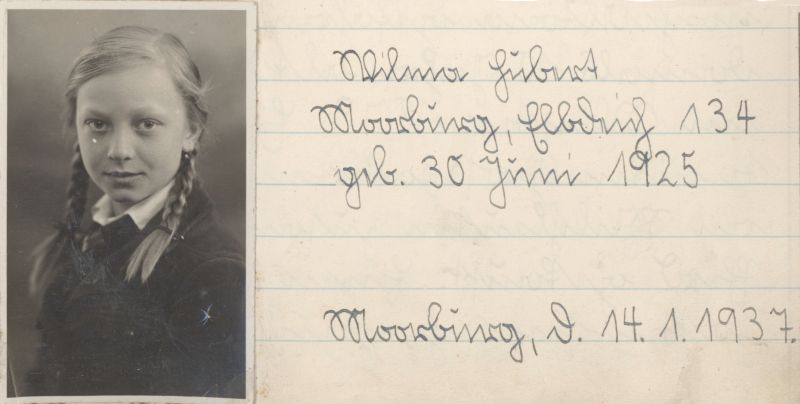 Wilma Hubert
Moorburg, Elbdeich 134
geb. 30 Juni 1925
Moorburg, d. 14. 1. 1937.